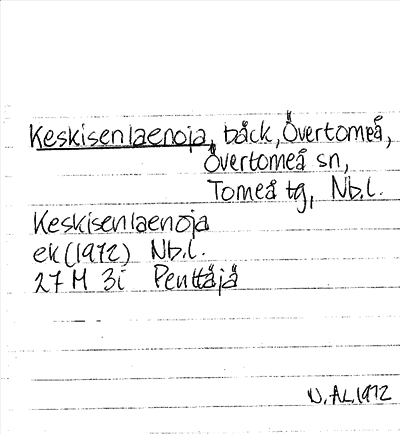 Keskisenlaenoja, bäck, Övertorneå,
Övertorneå sn,
Torneå tg, Nb.l.
Keskisenlaenoja
ek (1972) Nb.l.
27 M 3i Penttäjä
N. AL 1972